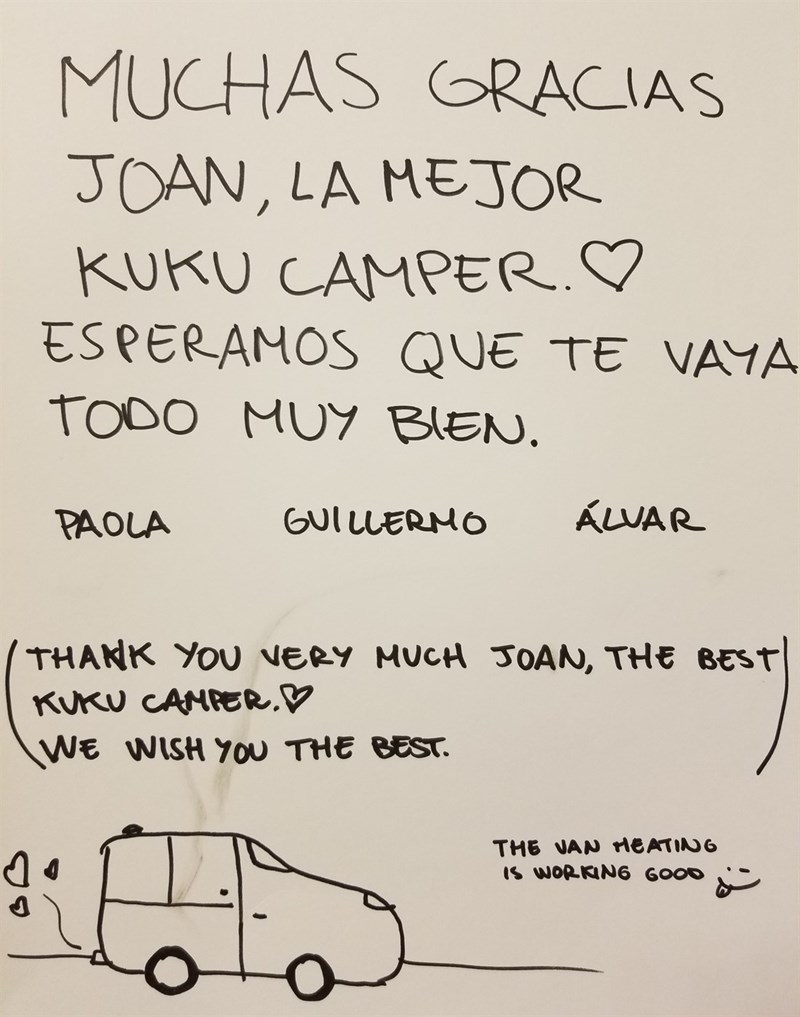 MUCHAS GRACIAS
JOAN, LA MEJOR
KUKU CAMPER. ♡
ESPERAMOS QUE TE VAYA
TODO MUY BIEN.
PAOLA GUILLERMO ÁLVAR
(THANK YOU VERY MUCH JOAN, THE BEST
KUKU CAMPER. ♡
WE WISH YOU THE BEST.)
THE VAN HEATING
IS WORKING GOOD